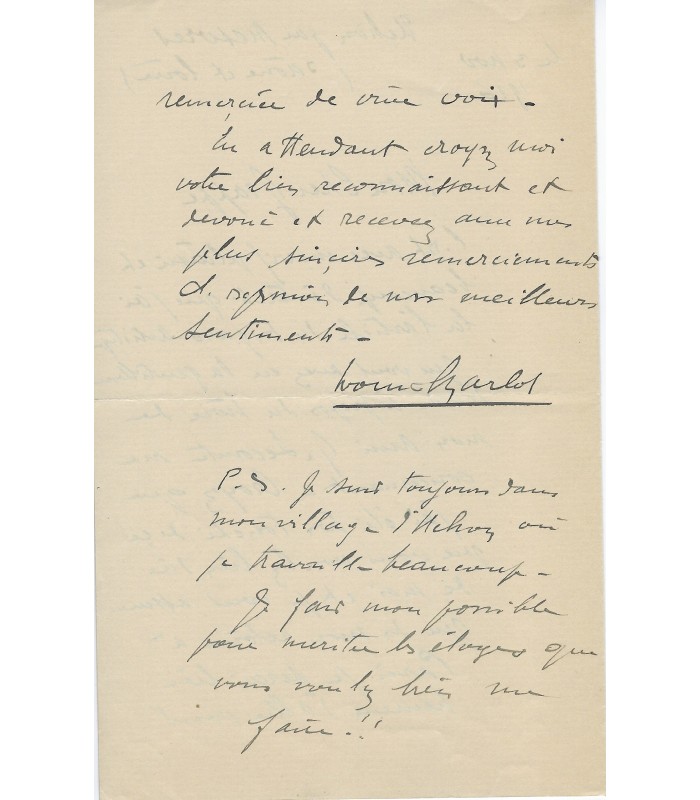 remerciée de vive voix -
En attendant croyez moi
votre bien reconnaissant et
devoué et recevez avec mes
plus sincères remerciements
l'expression de nos meilleurs
sentiments -
Louis Charlot
P.S. Je suis toujours dans
mon village d'Uchon où
je travaille beaucoup -
Je fais mon possible
pour meriter les éloges que
vous voulez bien me
faire !!